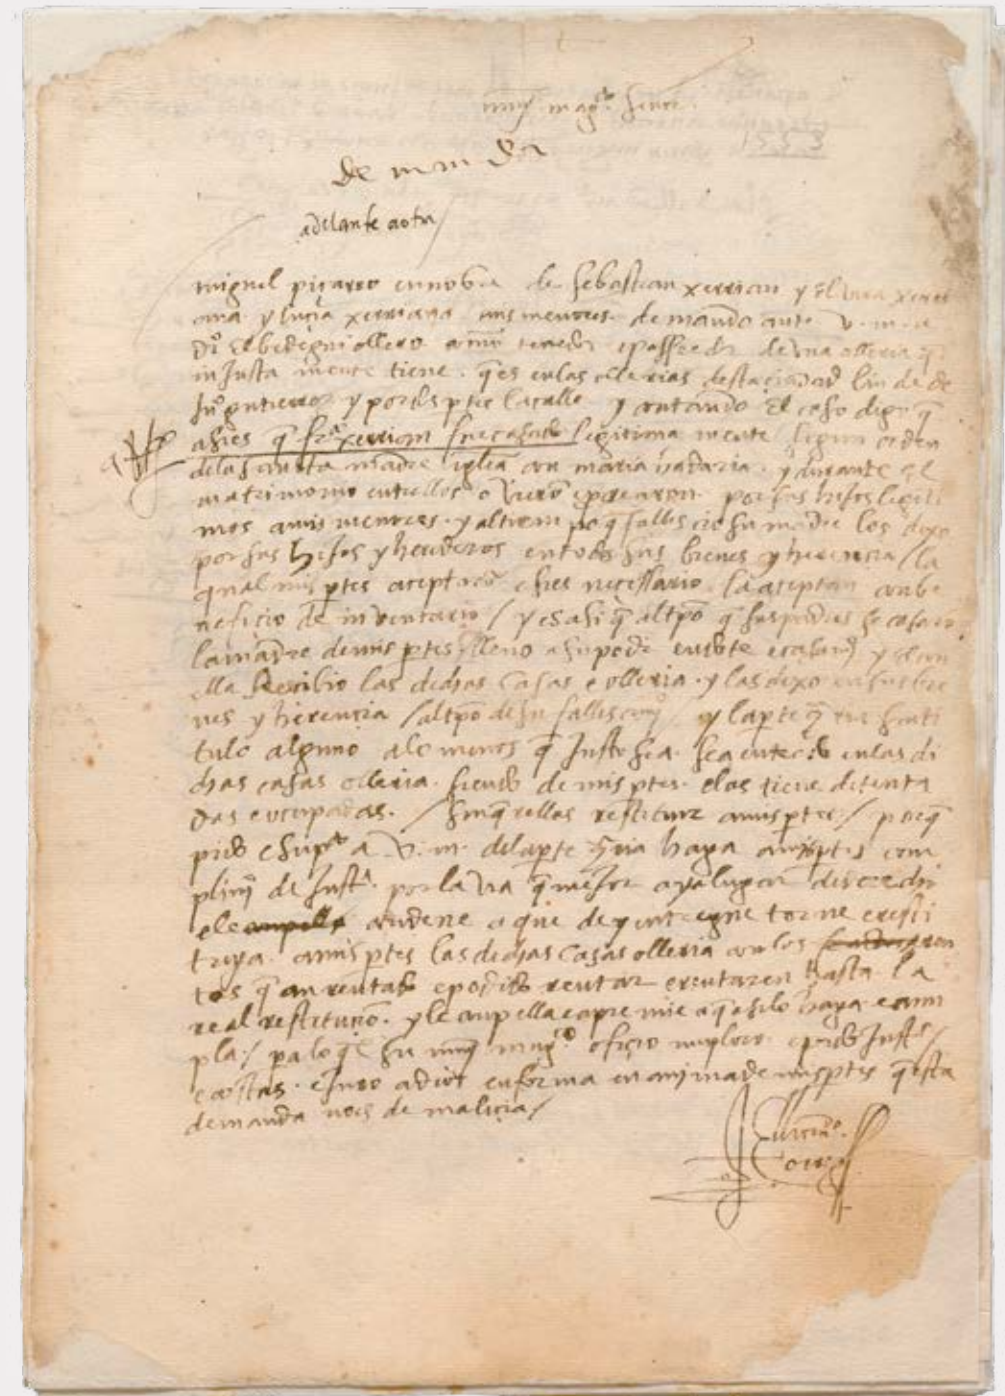 muy magco señor
1553
demanda
adelante aotra
miguel piçarro en nonbre de sebastian xerrian y elvira xerri
ana y luçia xerriana mis menores demando ante v. m. a
ollero como tenedor e posseedor de vna olleria q̃
injusta mente tiene. q̃ es en las ollerias desta çiudad linde de
juo gutierrez y por otra pte la calle y contando el caso digo q̃
asies q̃ frco xerrian fue casado legitima mente segun orden
de la santa madre iglia con maria y durante el
matrimonio entrellos ovieron e procrearon por sus hijos legiti
mos a mis menores. y al tienpo q̃ fallescio su madre los dexo
por sus hijos y herederos en todos sus bienes y herencia / la
qual mis ptes aceptaron e si es neçessario la aceptan con be
neficio de inventario / y es asi q̃ al tpo q̃ sus padres se casaron
la madre de mis ptes llevo a su poder en dote e casamio y
ella recibio las dichas casas e olleria. y las dexo en sus bie
nes y herencia / al tpo de su fallescimio / y la parte contraria sin ti
tulo alguno alo menos q̃ justo sea. sea entrado en las di
chas casas olleria. siendo de mis ptes. e los tiene detenta
dos e ocupadas. / sin q̃rellas restituir a mis ptes / porq̃
pido e supco a v. m. de la parte contraria haga a mis ptes com
plimio de justa. por la via q̃ mejor aya lugar de derecho
e le compella condene a que de y entregue torne e resti
tuya. a mis ptes las dichas casas olleria con los ren
tos q̃ an rentado e podido rentar e rentaren hasta la
real restitucion. y le compella e apremie a q̃ asi lo haga e cum
pla / pa lo q̃l su muy magco ofiçio inploro e pido justa /
e costas. e juro a dios en forma en anima de mis ptes q̃ esta
demanda no es de malicia /